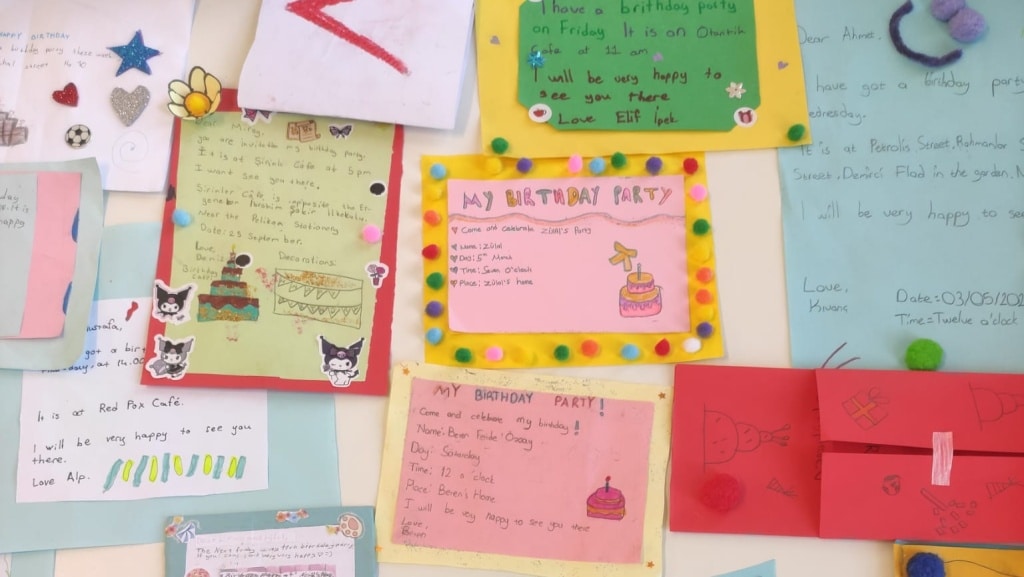 BIRTHDAY
I have a birthday party
on Friday It is an Otantik
Cafe at 11 am
I will be very happy to
see you there
Love Elif Ipek
Dear Ahmet,
I have got a birthday party
Wednesday.
It is at Petrolis Street, Rahmanlar S
Street, Demirci Flad in the garden, N
I will be very happy to see
Love,
Kıvanç
Date=03/05/202
Time=Twelve o'clock
Dear
you are invited to my birthday party.
It is at Şirinler Cafe at 5 pm
I want see you there.
Şirinler Cafe is opposite the
Near the Pelikan Stationery
Date: 25 September.
Love
Deniz
Birthday
Decorations:
MY BIRTHDAY PARTY
Come and celebrate Zülal's Party
Name: Zülal
Day: 5th March
Time: Seven O'clock
Place: Zülal's home
MY BIRTHDAY PARTY!
Come and celebrate my birthday!
Name: Beren Feride Özsoy
Day: Saturday
Time: 12 o'clock
Place: Beren's Home
I will be very happy to see you there
Love,
Beren
day
It is
happy
ustafa,
got a birt
day, at 14.00
It is at Red Pox Café.
I will be very happy to see you
there.
Love Alp.